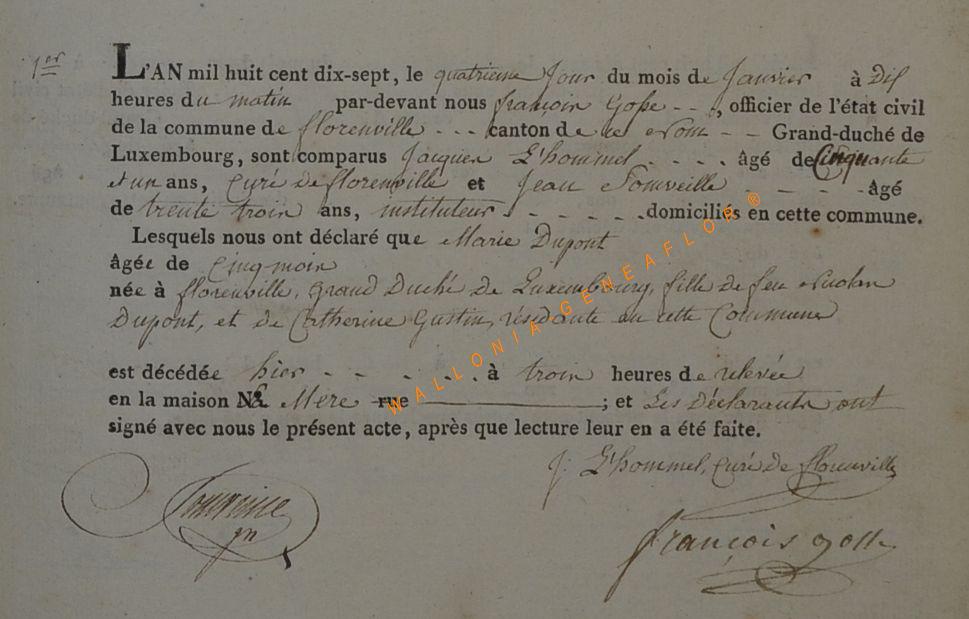 1er
L'AN mil huit cent dix-sept, le quatrieme Jour du mois de Janvier à Dix
heures du matin par-devant nous françois Gosse - - , officier de l'état civil
de la commune de florenville - - - canton de ce Nom - - Grand-duché de
Luxembourg, sont comparus Jacques L'hommel - - - - âgé de Cinquante
et un ans, Curé de florenville et Jean - - - - âgé
de trente trois ans, instituteur - - - - - domiciliés en cette commune.
Lesquels nous ont déclaré que Marie Dupont
âgée de Cinq mois
née à florenville, Grand Duché de Luxembourg, fille de feu Nicolas
Dupont, et de Catherine Gustin, résidante en cette Commune
est décédée hier - - - - - à trois heures de relevée
en la maison Mere rue ; et Les Déclarants ont
signé avec nous le présent acte, après que lecture leur en a été faite.
J: L'hommel, Curé de florenville
françois gosse
WALLONIA GENEAFLOR ®